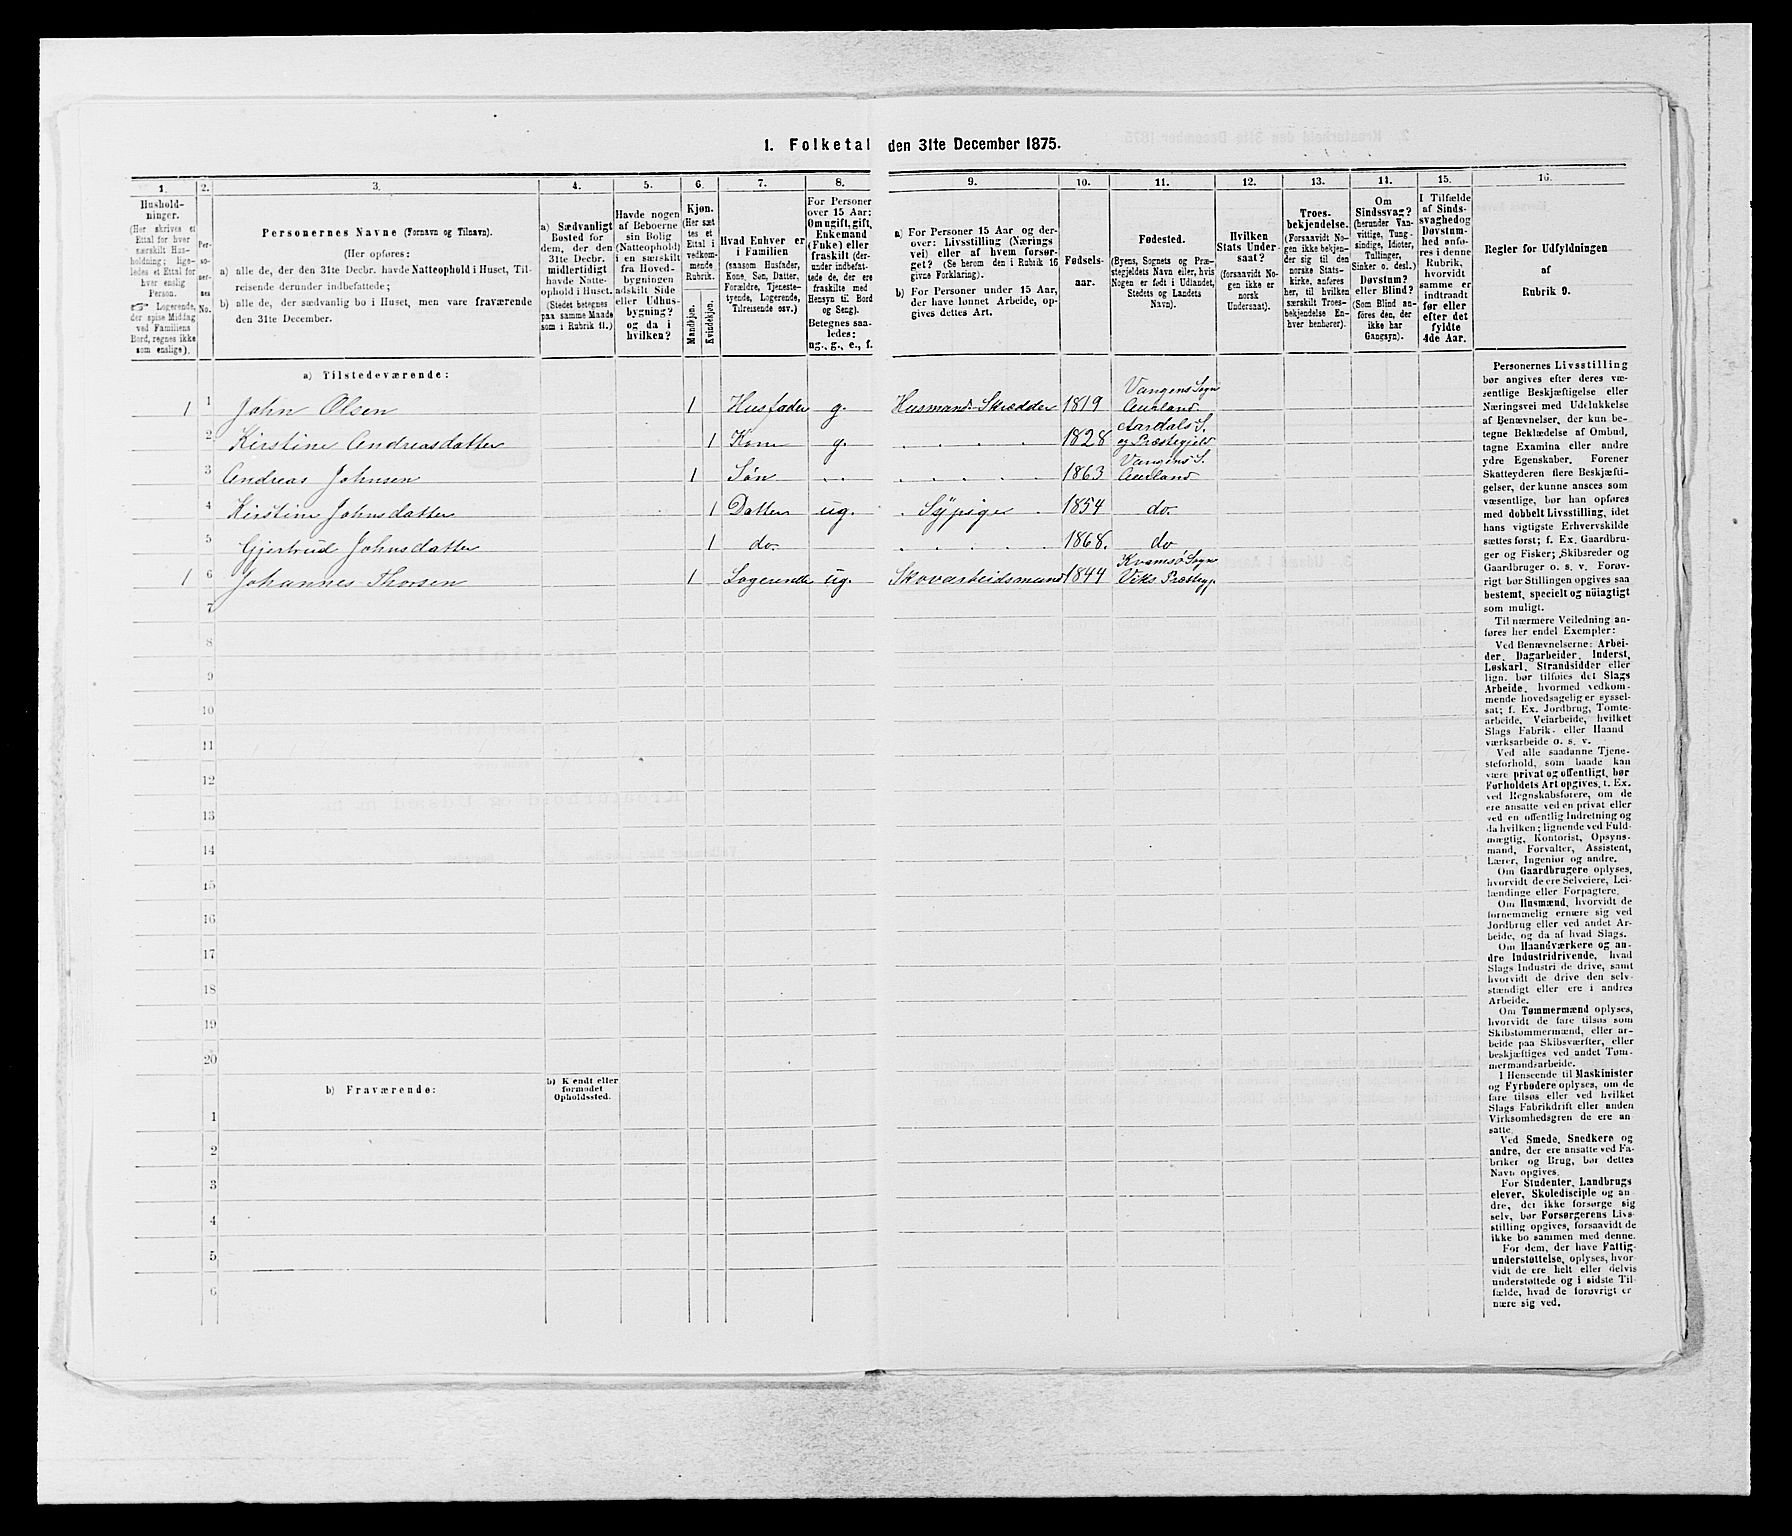 1. Folketal den 31te December 1875.
1.
2.
3.
4.
5.
6.
7.
8.
9.
10.
11.
12.
13.
14.
15.
16.
Hushold-
ninger.
(Her skrives et
Ettal for hver
særskilt Hus-
holdning; lige-
ledes et Ettal for
hver enslig
Person.
☞ Logerende,
der spise Middag
ved Familiens
Bord, regnes ikke
som enslige).
Per-
so-
ner-
nes
No.
Personernes Navne (Fornavn og Tilnavn).
(Her opføres:
a) alle de, der den 31te Decbr. havde Natteophold i Huset, Til-
reisende derunder indbefattede;
b) alle de, der sædvanlig bo i Huset, men vare fraværende
den 31te December.
a) Sædvanligt
Bosted for
dem, der den
31te Decbr.
midlertidigt
havde Natte-
ophold i Huset.
(Stedet betegnes
paa samme Maade
som i Rubrik 11.)
Havde nogen
af Beboerne
sin Bolig
(Natteophold)
i en særskilt
fra Hoved-
bygningen
adskilt Side
eller Udhus-
bygning?
og da i
hvilken?
Kjøn.
(Her sæt-
tes et
Ettal i
vedkom-
mende
Rubrik.
Mandkjøn.
Kvindekjøn.
Hvad Enhver er
i Familien
(saasom Husfader,
Kone, Søn, Datter,
Forældre, Tjeneste-
tyende, Logerende,
Tilreisende osv.)
For Personer
over 15 Aar:
Om ugift, gift,
Enkemand
(Enke) eller
fraskilt (der-
under indbefat-
tede de, der ere
fraskilte med
Hensyn til Bord
og Seng).
Betegnes saa-
ledes:
ug., g., e., f.
a) For Personer 15 Aar og der-
over: Livsstilling (Nærings
vei) eller af hvem forsør-
get? (Se herom den i Rubrik 16
givne Forklaring).
b) For Personer under 15 Aar,
der have lønnet Arbeide, op-
gives dettes Art.
Fødsels-
aar.
Fødested.
(Byens, Sognets og Præ-
stegjeldets Navn eller, hvis
Nogen er født i Udlandet,
Stedets og Landets
Navn).
Hvilken
Stats Under-
saat?
(forsaavidt No-
gen ikke er
norsk
Undersaat).
Troes-
bekjendelse.
(Forsaavidt No-
gen ikke bekjen-
der sig til den
norske Stats-
kirke, anføres
her, til hvilken
særskilt Troes-
bekjendelse En-
hver henhører).
Om
Sindssvag?
(herunder Van-
vittige, Tung-
sindige, Idioter,
Tullinger,
Sinker o. desl.)
Døvstum?
eller Blind?
(Som Blind an-
føres den, der
ikke har
Gangsyn).
I Tilfælde
af Sinds-
svaghed og
Døvstum-
hed anfø-
res i denne
Rubrik,
hvorvidt
samme er
indtraadt
før eller
efter det
fyldte
4de Aar.
Regler for Udfyldningen
af
Rubrik 9.
a) Tilstedeværende:
1 1 John Olsen 1 Husfader g. Husmand. Skrædder 1819 Vangens Sogn Aurland
2 Kirstine Andreasdatter 1 Kone g. 1828 Aardals S. og Præstegjeld
3 Andreas Johnsen 1 Søn 1863 Vangens S. Aurland
4 Kirstine Johnsdatter 1 Datter ug. Sypige 1854 do
5 Gjertrud Johnsdatter 1 do. 1868. do
1 6 Johannes Thorsen 1 Logerende ug. Skovarbeidsmand 1844 Kvamsø Sogn Viks Præstegj.
7
8
9
10
11
12
13
14
15
16
17
18
19
20
b) Fraværende:
b) Kjendt eller
formodet
Opholdssted.
1
2
3
4
5
6
Personernes Livsstilling
bør angives efter deres væ-
sentlige Beskjæftigelse eller
Næringsvei med Udelukkelse
af Benævnelser, der kun be-
tegne Beklædelse af Ombud,
tagne Examina eller andre
ydre Egenskaber. Forener
Skatteyderen flere Beskjæfti-
gelser, der kunne ansces som
væsentlige, bør han opføres
med dobbelt Livsstilling, idet
hans vigtigste Erhvervskilde
sættes først; f. Ex. Gaardbru-
ger og Fisker; Skibsreder og
Gaardbruger o. s. v. Forøv-
rigt bør Stillingen opgives saa
bestemt, specielt og nöiagtigt
som muligt.
Til nærmere Veiledning an-
føres her endel Exempler:
Ved Benævnelserne: Arbei-
der, Dagarbeider, Inderst,
Løskarl, Strandsidder eller
lign. bør tilføies det Slags
Arbeide, hvormed vedkom-
mende hovedsagelig er syssel-
sat; f. Ex. Jordbrug, Tomte-
arbeide, Veiarbeide, hvilket
Slags Fabrik- eller Haand
værksarbeide o. s. v.
Ved alle saadanne Tjene-
steforhold, som baade kan
være privat og offentligt, bør
Forholdets Art opgives, f. Ex.
ved Regnskabsførere, om de
ere ansatte ved en privat eller
ved en offentlig Indretning og
da hvilken; lignende ved Fuld-
mægtig, Kontorist, Opsyns-
mand, Forvalter, Assistent,
Lærer, Ingeniør og andre.
Om Gaardbrugere oplyses,
hvorvidt de ere Selveiere, Lei-
lændinge eller Forpagtere.
Om Husmænd, hvorvidt de
fornemmelig ernære sig ved
Jordbrug eller ved andet Ar-
beide, og da af hvad Slags.
Om Haandværkere og an-
dre Industridrivende, hvad
Slags Industri de drive, samt
hvorvidt de drive den selv-
stændigt eller ere i andres
Arbeide.
Om Tømmermænd oplyses,
hvorvidt de fare tilsøs som
Skibstømmermænd, eller ar-
beide paa Skibsværfter, eller
beskjæftiges ved andet Tøm-
mermandsarbeide.
I Henseende til Maskinister
og Fyrbødere oplyses, om de
fare tilsøs eller ved hvilket
Slags Fabrikdrift eller anden
Virksomhedsgren de ere an-
satte.
Ved Smede, Snedkere og
andre, der ere ansatte ved Fa-
briker og Brug, bør dettes
Navn opgives.
For Studenter, Landbrugs
elever, Skoledisciple og an-
dre, der ikke forsørge sig
selv, bør Forsørgerens Livs-
stilling opgives, forsaavidt de
ikke bo sammen med denne.
For dem, der have Fattig-
understøttelse, oplyses, hvor-
vidt de ere helt eller delvis
understøttede og i sidste Til-
fælde, hvad de forøvrigt er
nære sig ved.